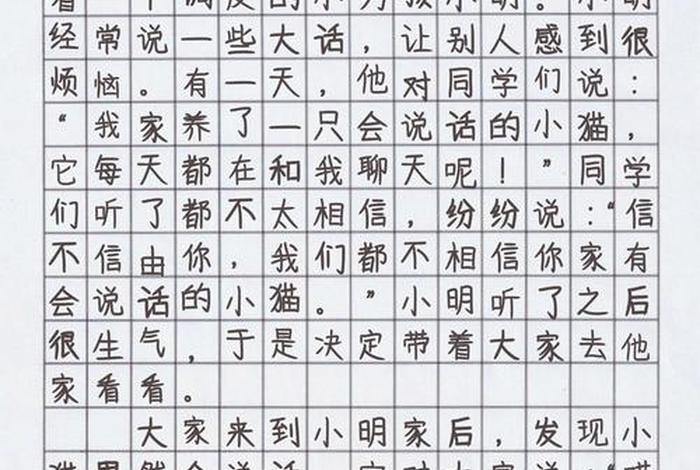 着一个调皮的小男孩小明。小明
经常说一些大话，让别人感到很
烦恼。有一天，他对同学们说：
“我家养了一只会说话的小猫，
它每天都在和我聊天呢！”同学
们听了都不太相信，纷纷说：“信
不信由你，我们都不相信你家有
会说话的小猫。”小明听了之后
很生气，于是决定带着大家去他
家看看。
大家来到小明家后，发现小
猫果然会说话，它对大家说：“